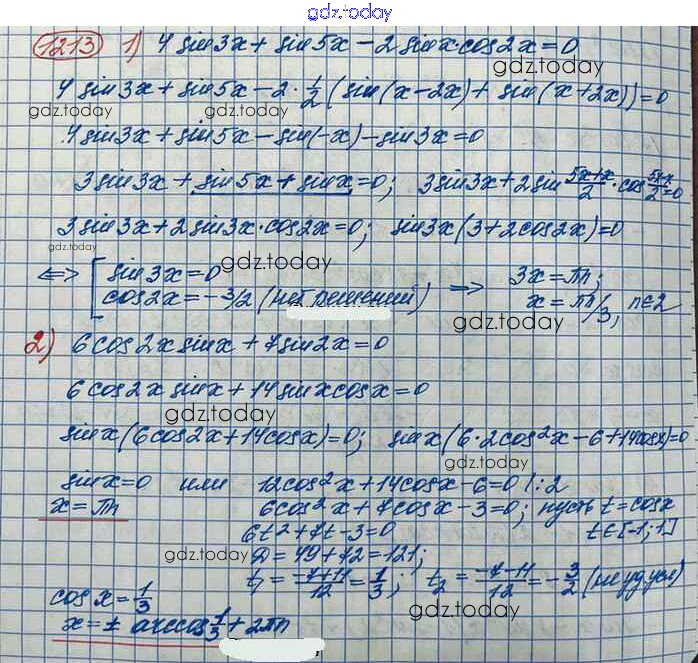 gdz.today
1213 1) 4 sin3x + sin5x − 2 sinx·cos2x = 0
gdz.today
4 sin3x + sin5x − 2·1/2 (sin(x−2x) + sin(x+2x)) = 0
gdz.today
4 sin3x + sin5x − sin(−x) − sin3x = 0
3 sin3x + sin5x + sinx = 0; 3 sin3x + 2 sin (5x+x)/2 · cos (5x−x)/2 = 0
gdz.today
3 sin3x + 2 sin3x·cos2x = 0; sin3x(3 + 2cos2x) = 0
gdz.today gdz.today
⟺ [ sin3x = 0
cos2x = −3/2 (нет решений) ⟹ 3x = πn;
x = πn/3, n∈Z
gdz.today
2) 6cos2x sinx + 7sin2x = 0
6cos2x sinx + 14 sinx cosx = 0
gdz.today
sinx(6cos2x + 14cosx) = 0; sinx(6·2cos²x − 6 + 14cosx) = 0
gdz.today
sinx = 0 или 12cos²x + 14cosx − 6 = 0 /:2
x = πn 6cos²x + 7cosx − 3 = 0; пусть t = cosx
6t² + 7t − 3 = 0 t∈[−1;1]
gdz.today
D = 49 + 72 = 121;
t₁ = (−7+11)/12 = 1/3; t₂ = (−7−11)/12 = −3/2 (не уд. усл)
gdz.today
cosx = 1/3
x = ± arccos 1/3 + 2πn
gdz.today